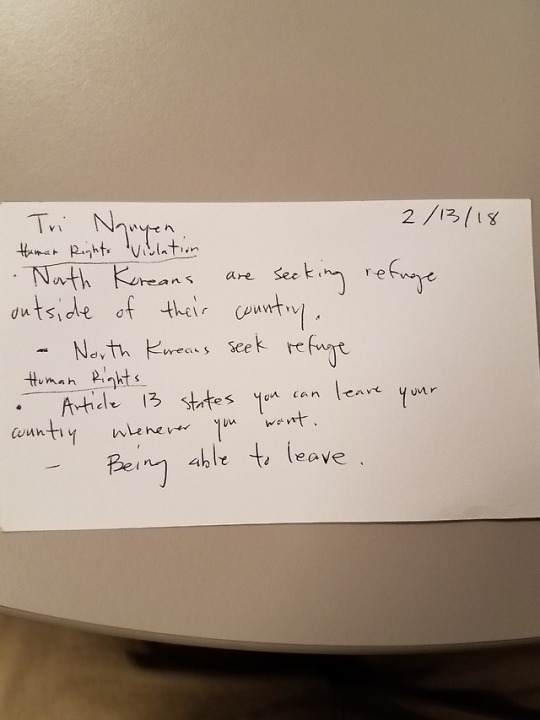 Tri Nguyen 2/13/18
Human Rights Violation
· North Koreans are seeking refuge
outside of their country.
- North Koreans seek refuge
Human Rights
• Article 13 states you can leave your
country whenever you want.
- Being able to leave.